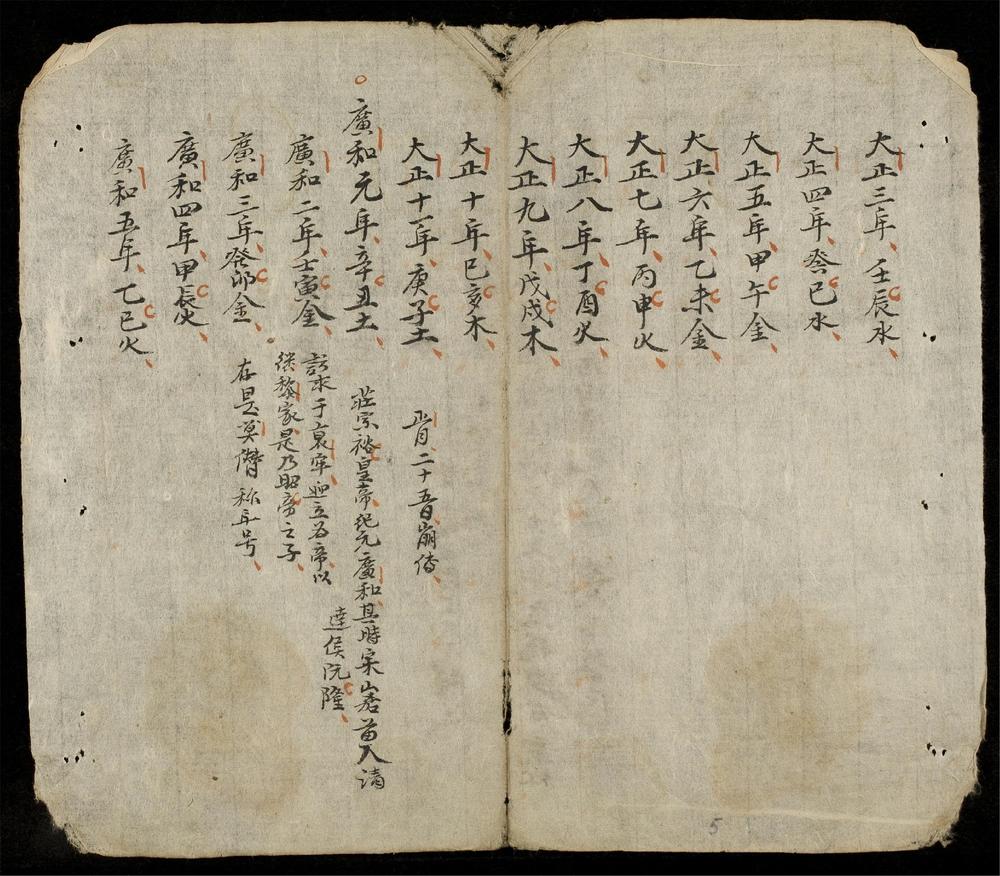 大正三年壬辰水
大正四年癸巳水
大正五年甲午金
大正六年乙未金
大正七年丙申火
大正八年丁酉火
大正九年戊戌木
大正十年己亥木
大正十一年庚子土
正月二十五日崩傳
廣和元年辛丑土
莊宗裕皇帝紀元廣和其時宋山 苗人清
達侯阮隆
廣和二年壬寅金
訪求于哀牢迎立為帝以
继黎家是乃昭帝之子
廣和三年癸卯金
存是莫僭称年号
廣和四年甲辰火
廣和五年乙巳火
5